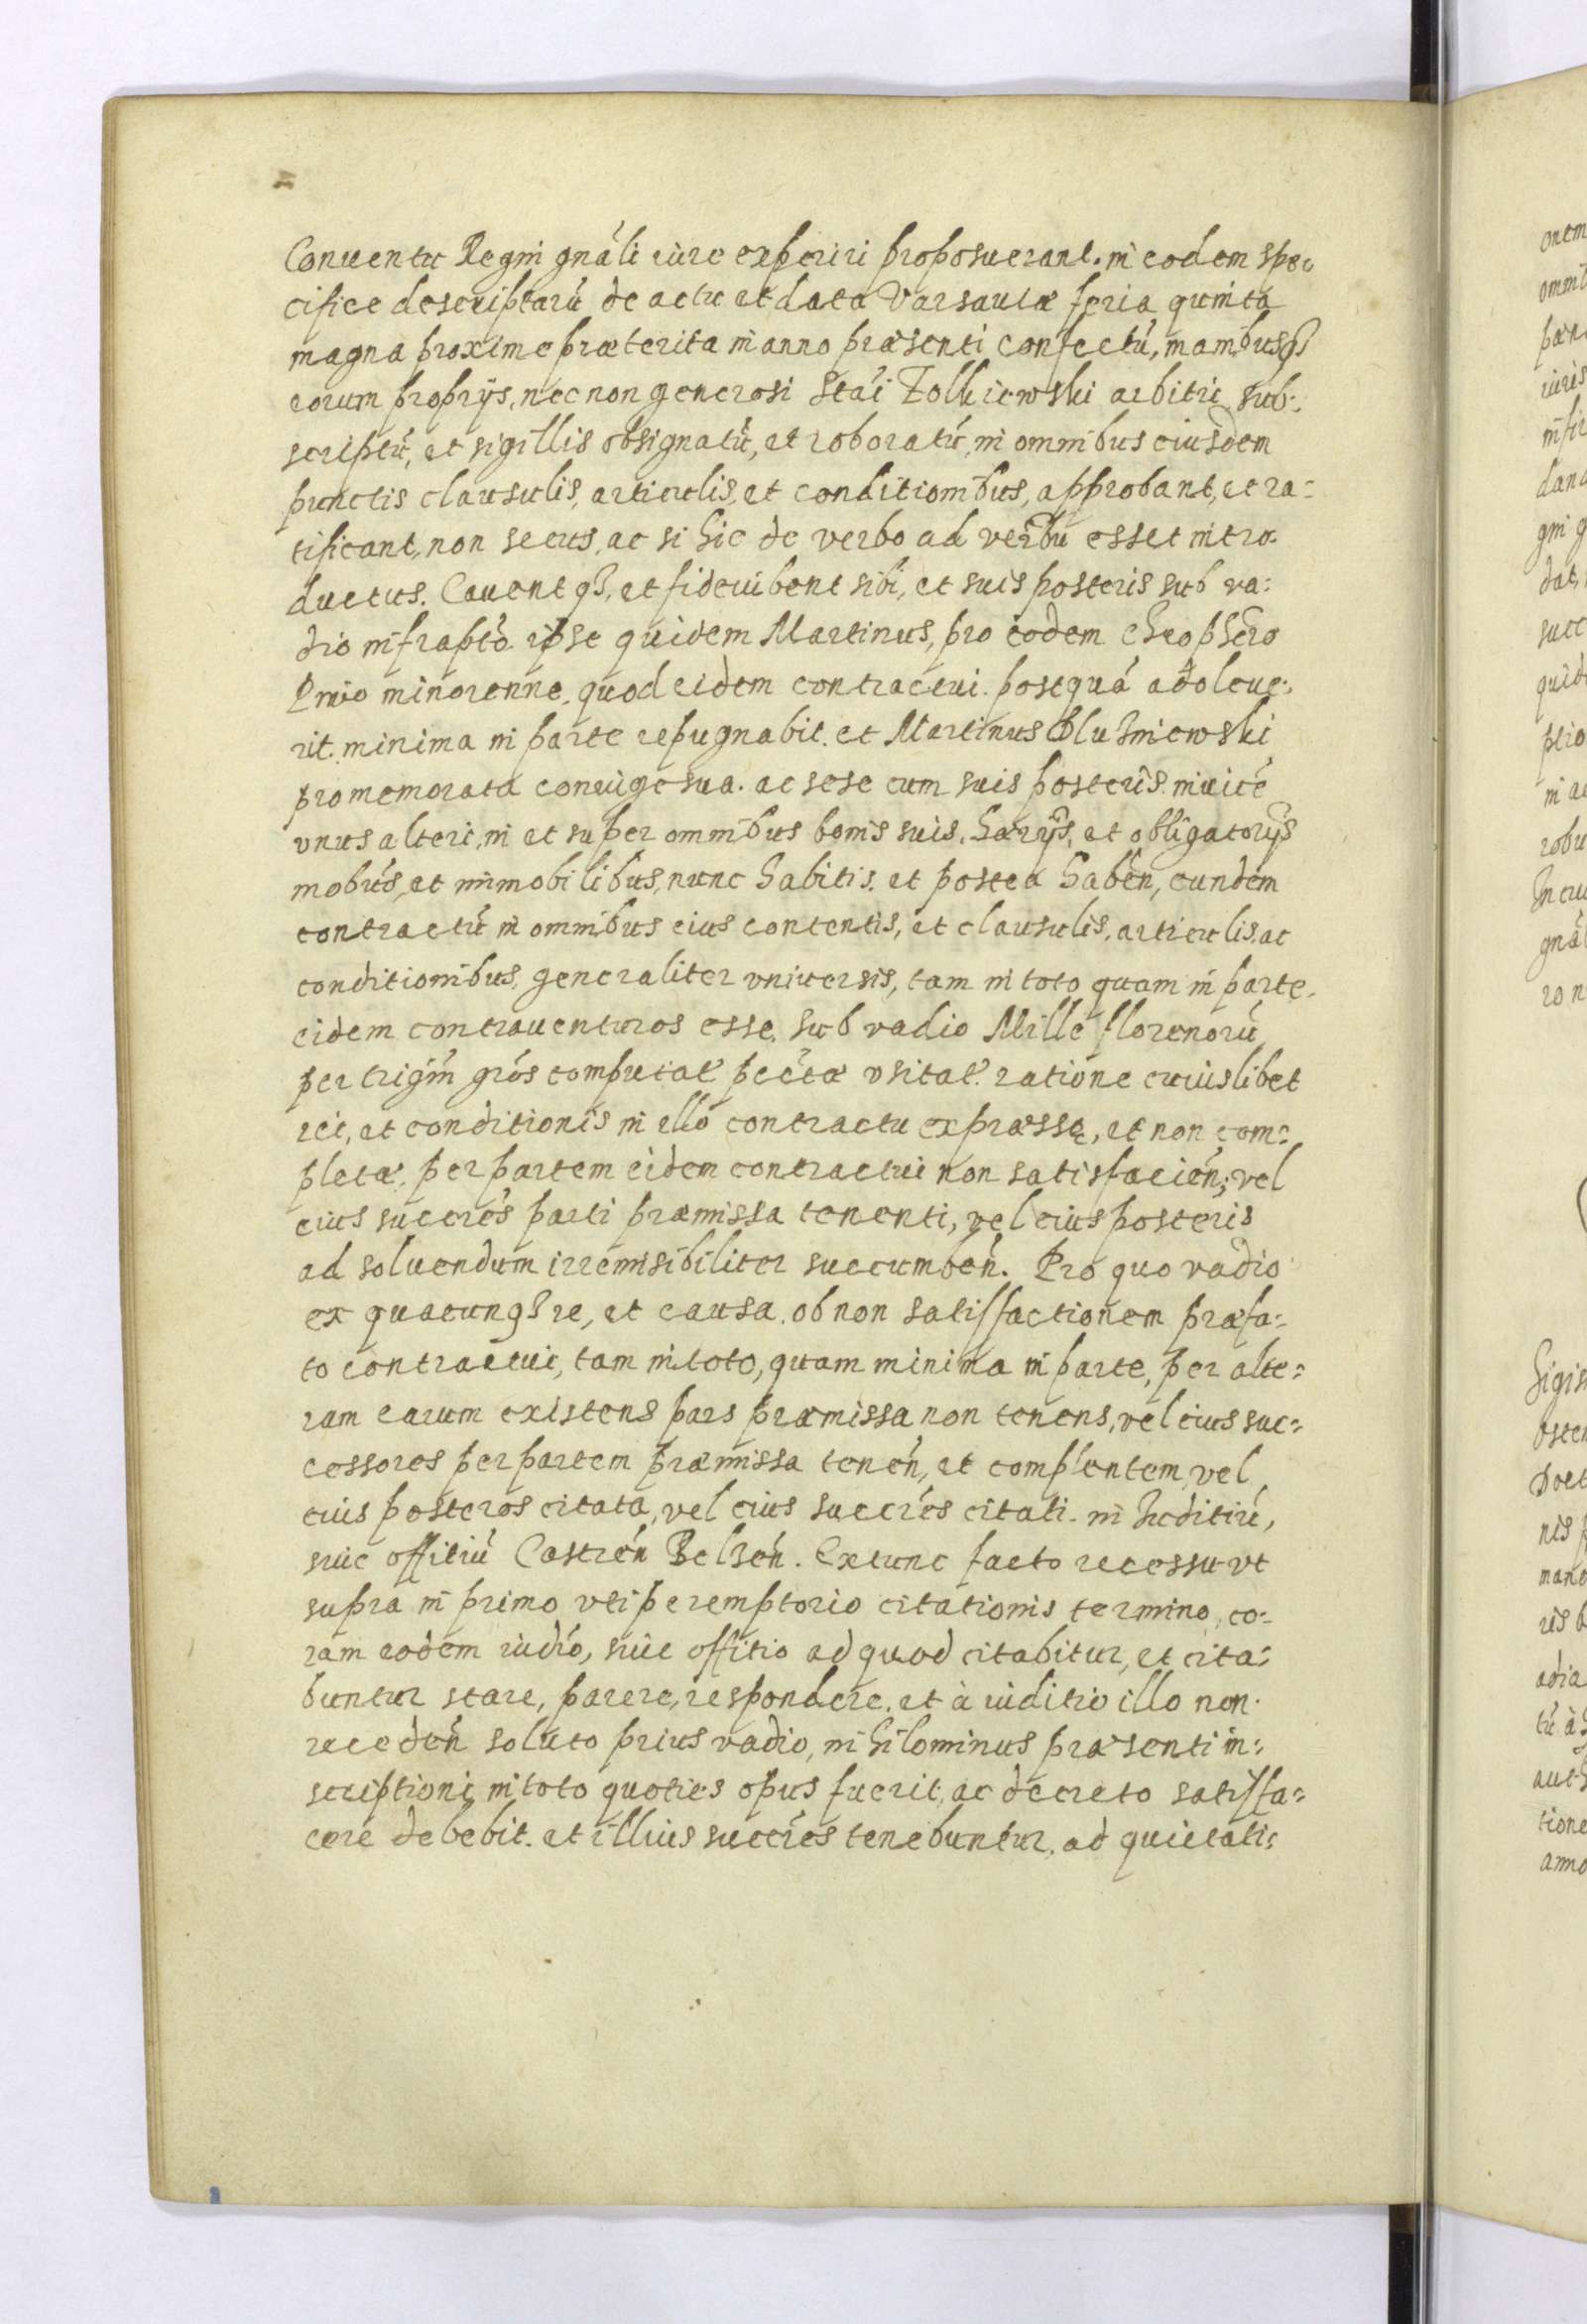 Conventu Regni gnáli iure experiri proposuerant. in eodem spe-
cifice descriptarú de actu et data Varsaviæ feria quinta
magna proxime præterita in anno præsenti confectú, manibusq3
eorum proprys, nec non generosi Stái Zolkiewski arbitri sub-
scriptú, et sigillis obsignatú, et roboratú, in omnibus eiusdem
punctis clausulis, articulis, et conditionibus, approbant, et ra-
tificant, non secus, ac si hic de verbo ad verbú esset intro-
ductus. Cauentq3, et fideiubent sibi, et suis posteris sub va-
dio infrapto. ipse quidem Martinus, pro eodem
minorenne, quod eidem contractui. postquá adoleue-
rit. minima in parte repugnabit. et Martinus
pro memorata coniuge sua. ac sese cum suis posteris. inuicé
vnus alteri, in et super omnibus bonis suis, harys, et obligatorys
mobús, et immobilibus, nunc habitis. et postea habén, eundem
contractú in omnibus eius contentis, et clausulis, articulis, ac
conditionibus, generaliter vniversis, tam in toto quam in parte.
eidem contrauenturos esse. sub vadio Mille florenorú
per trigín grós computat pecćæ vsitat. ratione cuiuslibet
rei, et conditionis in illo contractu expræssę, et non com-
pletæ. per partem eidem contractui non satisfacién; vel
eius succrés parti præmissa tenenti, vel eius posteris
ad soluendum irremisibiliter succumbén. Pro quo vadio
ex quacunq3 re, et causa. ob non satisfactionem præfa-
to contractui, tam in toto, quam minima in parte, per alte-
ram earum existens pars præmissa non tenens, vel eius suc-
cessores per partem præmissa tenén, et complentem, vel
eius posteros citata, vel eius succrés citati. in Iuditiú,
siue offitiú Castrén Belzén. Extunc facto recessu vt
supra in primo vti peremptorio citationis termino, co-
ram eodem iudió, siue offitio ad quod citabitur, et cita-
buntur stare, parere, respondere. et à iuditio illo non
recedén soluto prius vadio, nihilominus præsenti in-
scriptioni in toto quoties opus fuerit, ac decreto satisfa-
cere debebit. et illius succrés tenebuntur. ad quietati-